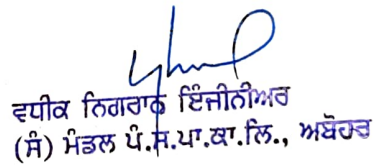 ਵਧੀਕ ਨਿਗਰਾਨ ਇੰਜੀਨੀਅਰ
(ਸੰ) ਮੰਡਲ ਪੰ.ਸ.ਪਾ.ਕਾ.ਲਿ., ਅਬੋਹਰ